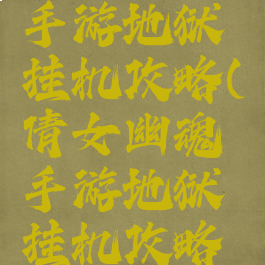 手游地狱
挂机攻略(
倩女幽魂
手游地狱
挂机攻略